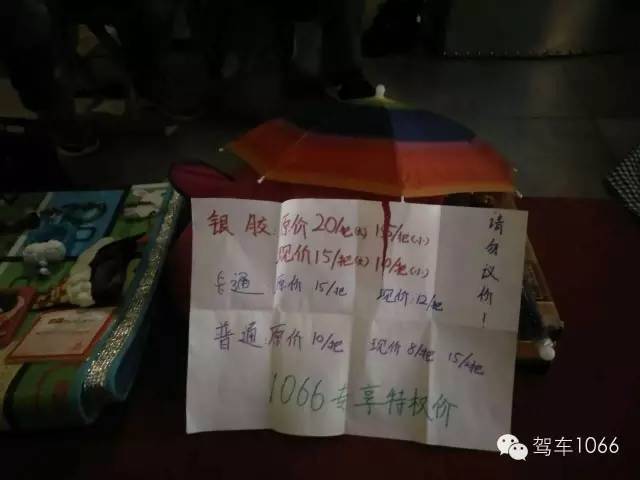 银胶 原价20/把(大) 15/把(小)
现价15/把(大) 10/把(小)
卡通 原价 15/把 现价:12/把
普通 原价10/把 现价8/把 15/2把
1066专享特权价
请勿议价!
驾车1066